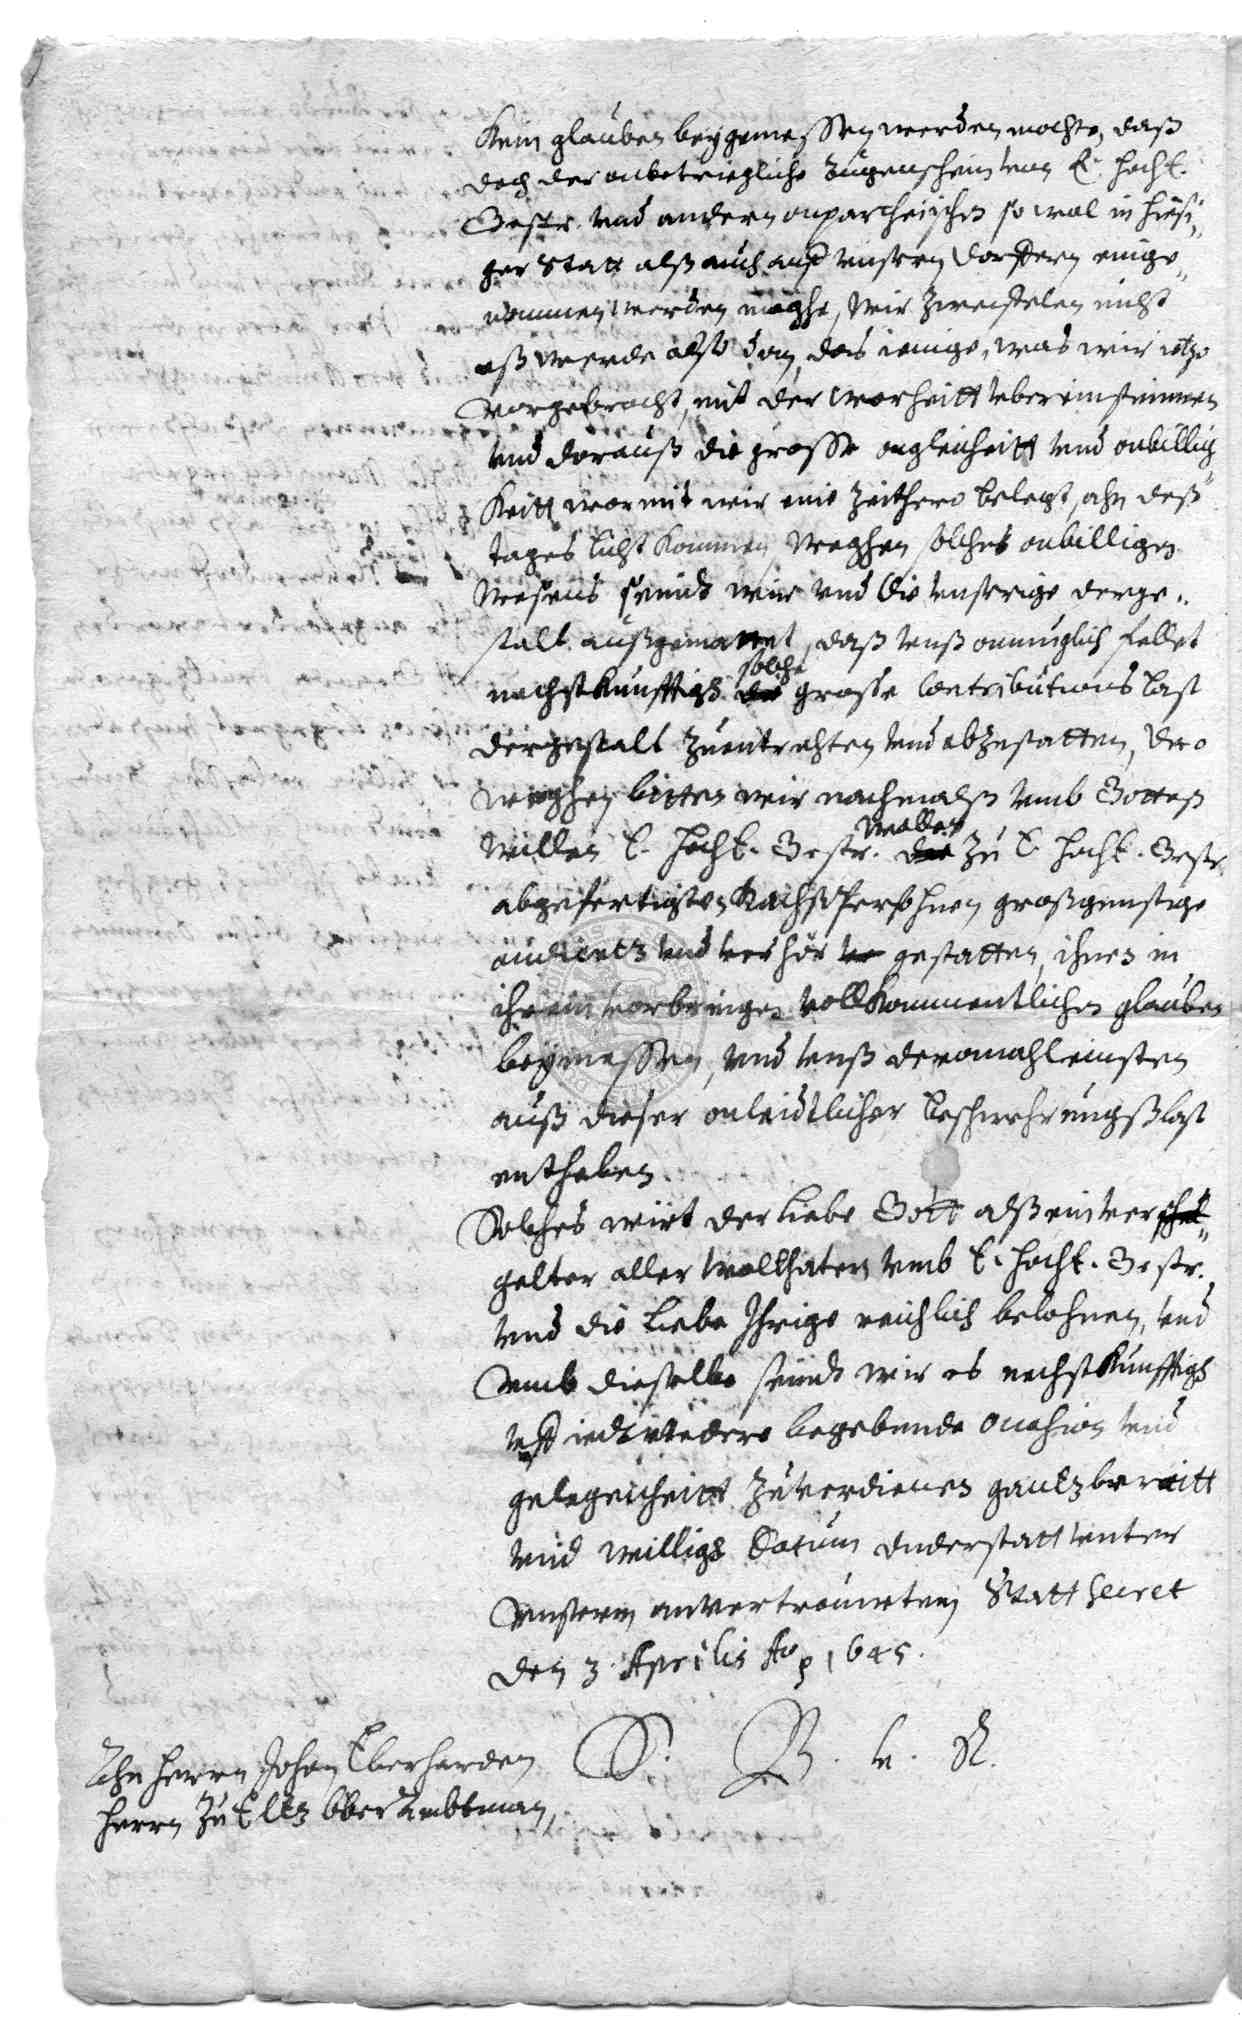 Kein glauben beygemessen werden mochte, daß
doch der onbetriegliche Augenschein von E. hoch E.
Gestr. vnd andern onpartheiischen so wol in hiesi„
ger Statt alß auch auf vnsern Dorffern einge„
nommen werden moghe, Wir Zweiffelen nicht
eß werde alß dan, das ienige, was wir ietzo
vorgebracht, mit der Warheitt vbereinstimmen
vnd darauß die grosse ongleicheitt vnd onbillig
Keitt wormit wir eine Zeithero belegt, ahn deß
tages licht kommen, Weghen solches onbilligen
Wesens seindt wir vnd die vnserige derge„
stalt außgemattet, daß vnß onmuglich fellet
nechstkunfftigh solche grosse Contributions last
dergestalt Zuentrichten vnd abZustatten, Dero
weghen bitten wir nachmalß vmb Gotteß
Willen E. hoch E. Gestr. Wollen Zu E. hoch E. Gestr.
abgefertigten Rathß Persohnen großgunstige
audientz vnd verhör gestatten, ihnen in
ihrem vorbringen vollkommentlichen glauben
beymessen, vnd vnß deromahleinsten
auß dieser onleidtlicher beschwehrungßlast
entheben.
Solches wirt der Liebe Gott alß ein ver
gelter aller Wollthaten vmb E. hoch E. Gestr.
vnd die Liebe Ihrige reichlich belohnen, vnd
vmb dieselbe seindt wir es nechstkunfftigh
vff iedtwedere begebende occasion vnd
gelegenheitt Zuverdienen gantz bereitt
vnd willigh Datum Duderstatt vnter
vnserm anvertrauweten Statt Secret
den 3. Aprilis Ao 1645.
S. B. v. R.
Ahn herrn Johan Eberharden
herrn Zu Eltz Ober Ambtman,